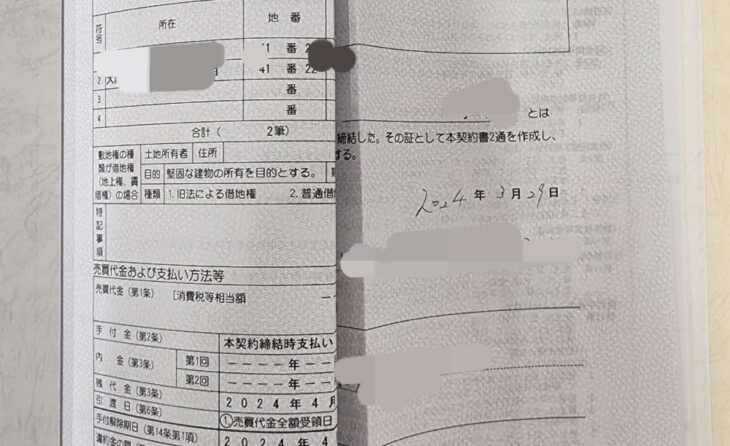 符号 所在 地番
41 番 22
2
3 番
4 番
合計（ 2筆）
敷地権の種類が借地権（地上権、賃借権）の場合 土地所有者 住所
目的 堅固な建物の所有を目的とする。
種類 1. 旧法による借地権 2. 普通借
特記事項
売買代金および支払い方法等
売買代金（第1条） [消費税等相当額
手付金（第2条） 本契約締結時支払い
内金（第3条） 第1回 ーー年ー
第2回 ーー年ー
残代金（第3条） 2024年4月
引渡日（第6条） ①売買代金全額受領日
手付解除期日（第14条第1項） 2024年4
違約金の
とは
締結した。その証として本契約書2通を作成し、
する。
2024年3月29日